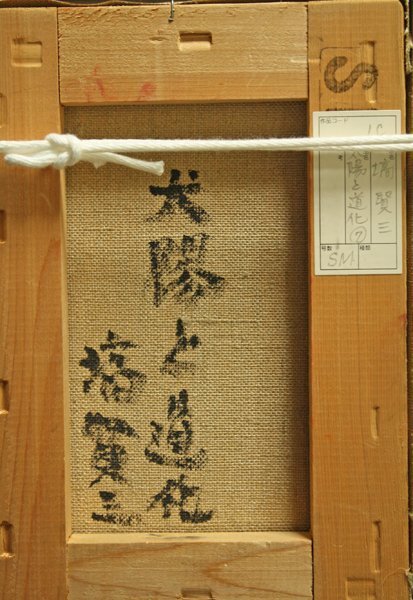 太陽と道化
塙賢三
S
作品コード
塙賢三
太陽と道化⑦
号数
SM
種類